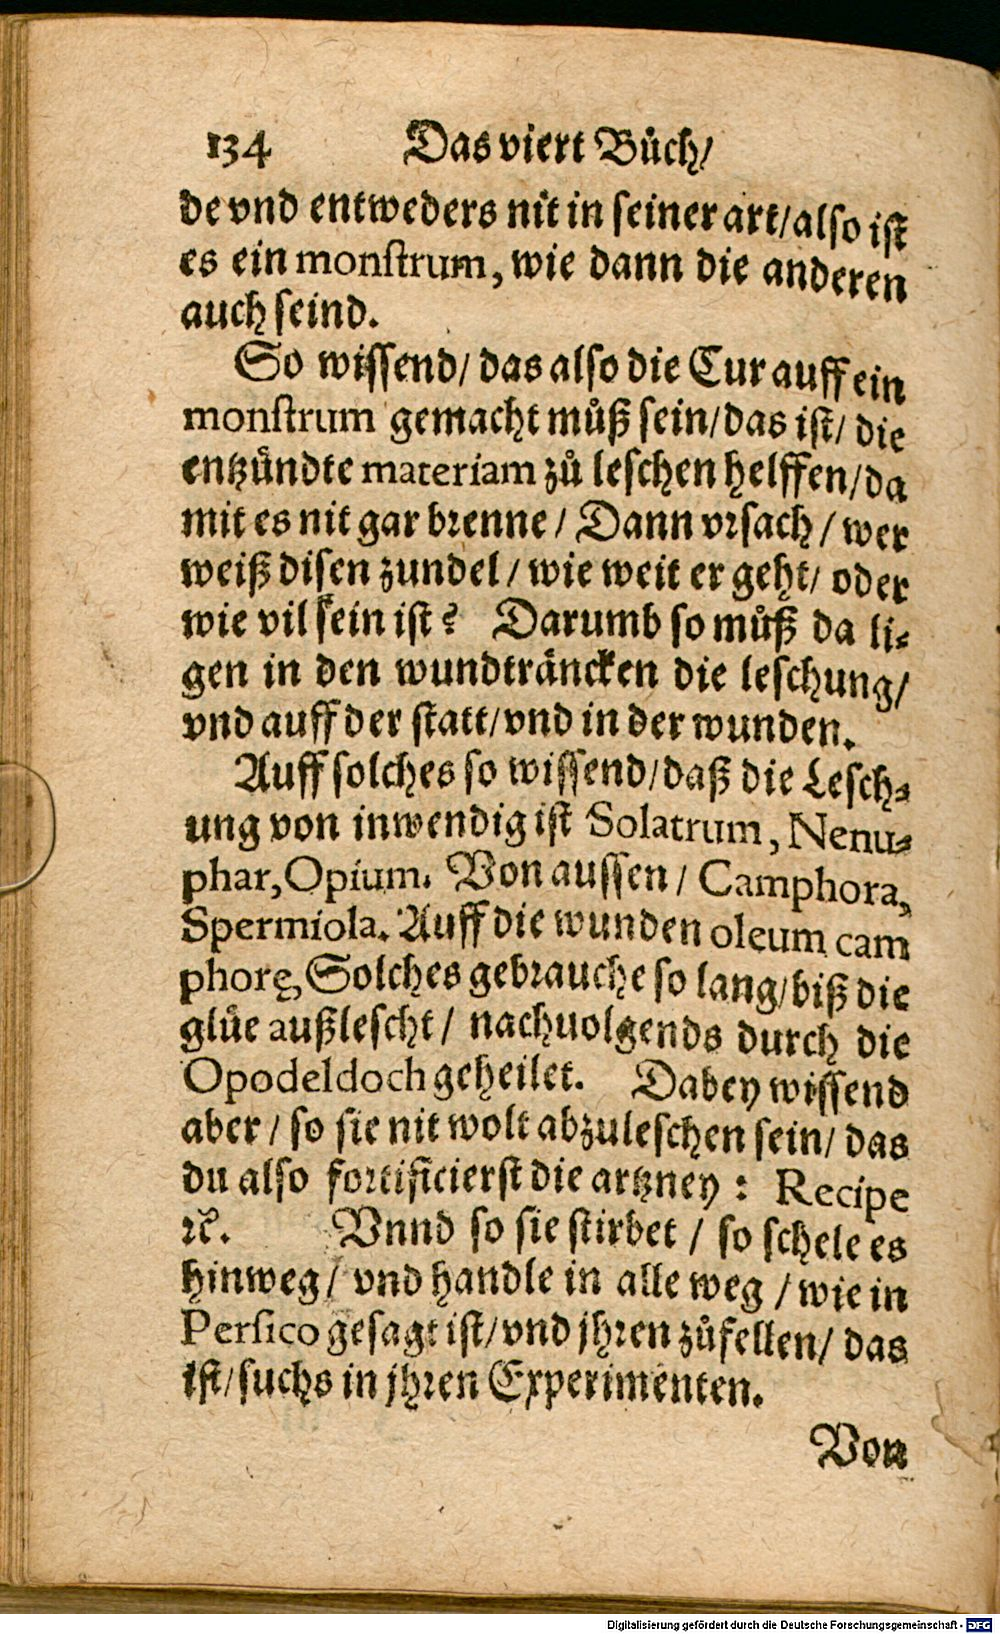 134 Das viert Bůch/
de vnd entweders nit in seiner art/also ist
es ein monstrum, wie dann die anderen
auch seind.
So wissend/ das also die Cur auff ein
monstrum gemacht můß sein/das ist/ die
entzündte materiam zů leschen helffen/da
mit es nit gar brenne / Dann vrsach / wer
weiß disen zundel / wie weit er geht/ oder
wie vil sein ist? Darumb so můß da li-
gen in den wundträncken die leschung/
vnd auff der statt/vnd in der wunden.
Auff solches so wissend/daß die Lesch-
ung von inwendig ist Solatrum, Nenu-
phar, Opium. Von aussen / Camphora,
Spermiola. Auff die wunden oleum cam
phorę, Solches gebrauche so lang/biß die
glüe außlescht / nachuolgends durch die
Opodeldoch geheilet. Dabey wissend
aber / so sie nit wolt abzuleschen sein/ das
du also fortificierst die artzney : Recipe
ꝛc. Vnnd so sie stirbet / so schele es
hinweg/ vnd handle in alle weg / wie in
Persico gesagt ist/vnd jhren zůfellen/ das
ist/suchs in jhren Experimenten.
Von
Digitalisierung gefördert durch die Deutsche Forschungsgemeinschaft - DFG